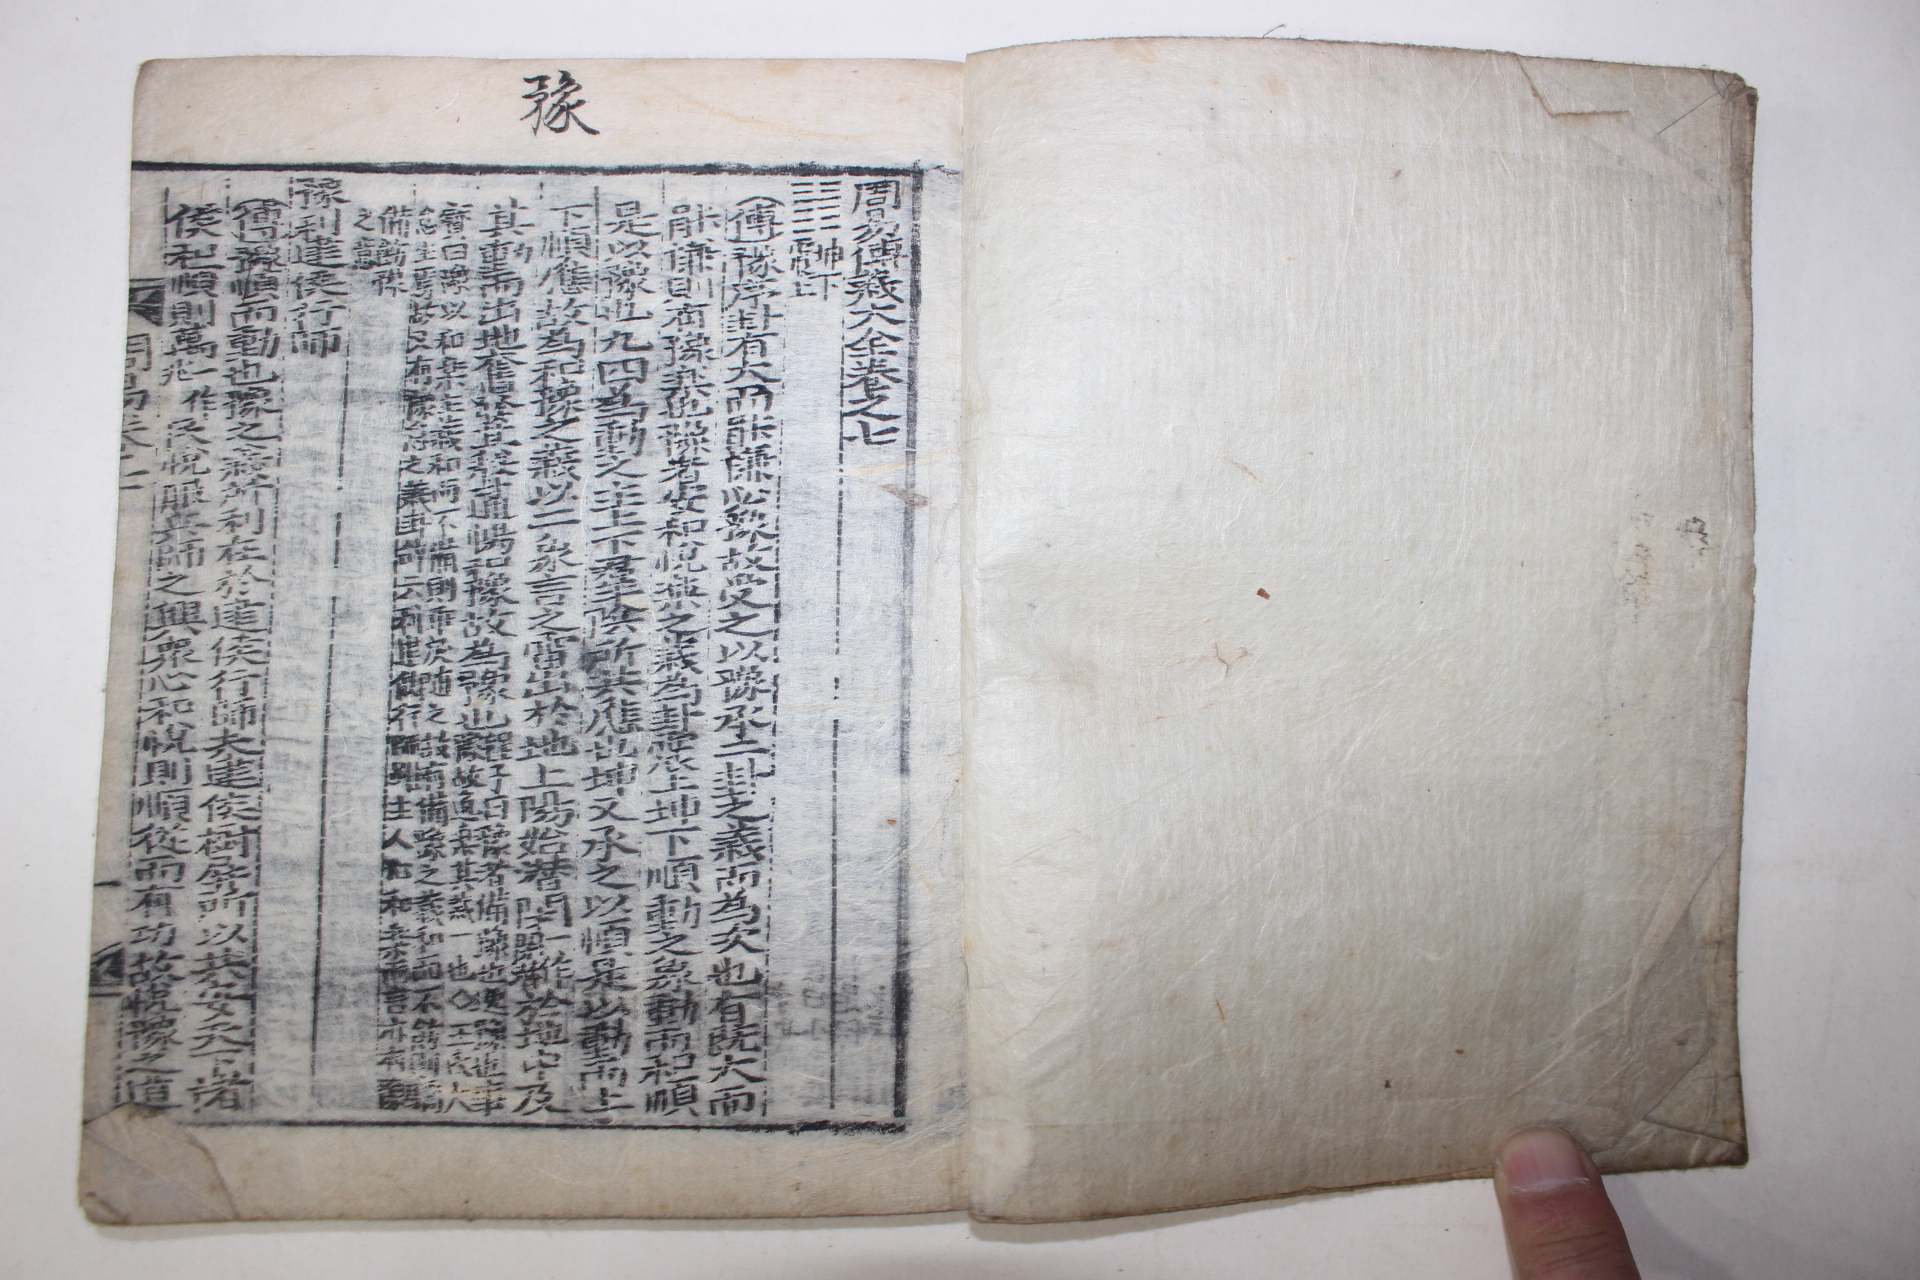 豫
周易傳義大全卷之七
坤下
震上
傳豫序卦有大而能謙必豫故受之以豫承二卦之義而爲次也有既大而
能謙則有豫樂也豫者安和悅樂之義爲卦震上坤下順動之象動而和順
是以豫也九四爲動之主上下群陰所共應也坤又承之以順是以動而上
下順應故爲和豫之義以二象言之雷出於地上陽始潛閉一作於地中及
其動而出地奮發其聲通暢和豫故爲豫也程子曰豫者備豫也逸豫也事
豫故逸樂其義一也
備豫
之
豫利建侯行師
傳豫順而動也豫之義所利在於建侯行師夫建侯樹屏所以共安天下諸
侯和順則萬 一作 民悅服兵師之興衆心和悅則順從而有功故悅豫之道